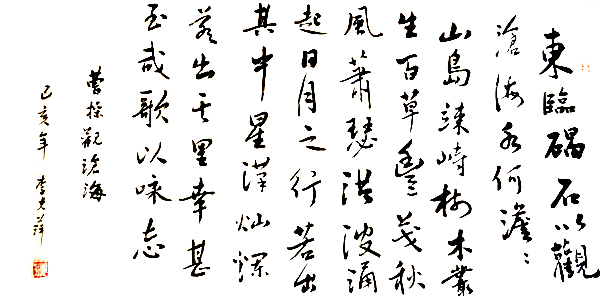 東臨碣石以觀
滄海水何澹〻
山島竦峙树木叢
生百草豐茂秋
風蕭瑟洪波涌
起日月之行若出
其中星漢灿爛
若出其里幸甚
至哉歌以咏志
曹操觀滄海
己亥年 李